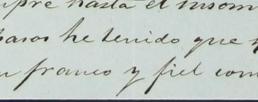 pre hasta el insom
pasos he tenido que
franco y fiel com